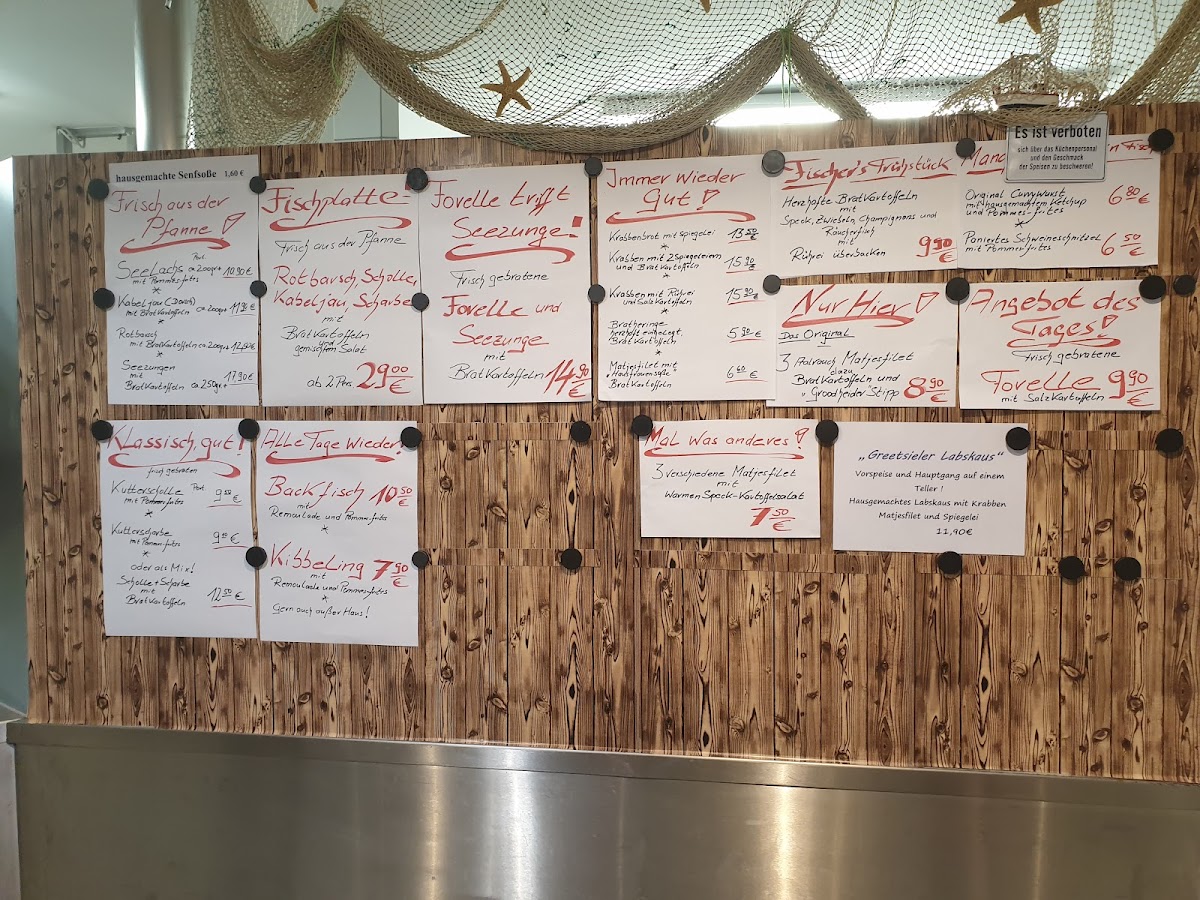 hausgemachte Senfsoße 1,60 €
Frisch aus der
Pfanne!
Port.
Seelachs ca 200gr. 10,90 €
mit Pommes-frites
*
Kabeljau (Dorsch)
mit Bratkartoffeln ca 200gr. 11,90 €
*
Rotbarsch
mit Bratkartoffeln ca 200gr. 12,90 €
*
Seezungen
mit
Bratkartoffeln ca 250gr. 17,90 €
Fischplatte!
Frisch aus der Pfanne
Rotbarsch, Scholle,
Kabeljau, Scharbe
mit
Bratkartoffeln
und
gemischtem Salat
ab 2 Pers. 29,00 €
Forelle trifft
Seezunge!
Frisch gebratene
Forelle und
Seezunge
mit
Bratkartoffeln 14,90 €
Immer wieder
Gut!
Krabbenbrot mit Spiegelei 13,50 €
*
Krabben mit 2 Spiegeleiern
und Bratkartoffeln 15,90 €
*
Krabben mit Rührei
und Salzkartoffeln 15,90 €
*
Bratheringe
herzhaft eingelegt.
Bratkartoffeln 5,90 €
*
Matjesfilet mit
"Hausfrauensoße"
Bratkartoffeln 6,60 €
Fischer's Frühstück
Herzhafte Bratkartoffeln
mit
Speck, Zwiebeln, Champignons und
Räucherfisch
mit
Rührei überbacken 9,90 €
Es ist verboten
sich über das Küchenpersonal
und den Geschmack
der Speisen zu beschweren!
Original Currywurst
mit hausgemachtem Ketchup
und Pommes-frites 6,80 €
*
Paniertes Schweineschnitzel
mit Pommes-frites 6,50 €
Nur Hier!
Das Original
3 Aalrauch Matjesfilet
dazu
Bratkartoffeln und
"Groodheider" Stipp 8,90 €
Angebot des
Tages!
Frisch gebratene
Forelle 9,90 €
mit Salzkartoffeln
Klassisch, gut!
frisch gebraten
Kutterscholle Port. 9,50 €
mit Pommes-frites
*
Kutterscharbe
mit Pommes-frites
*
oder als Mix!
Scholle + Scharbe
mit
Bratkartoffeln 12,50 €
Alle Tage wieder!
Backfisch 10,50 €
mit
Remoulade und Pommes-frites
*
Kibbeling 7,90 €
mit
Remoulade und Pommes-frites
*
Gern auch außer Haus!
Mal was anderes!
3 verschiedene Matjesfilet
mit
warmen Speck-Kartoffelsalat
7,50 €
„Greetsieler Labskaus“
Vorspeise und Hauptgang auf einem
Teller !
Hausgemachtes Labskaus mit Krabben
Matjesfilet und Spiegelei
11,90€